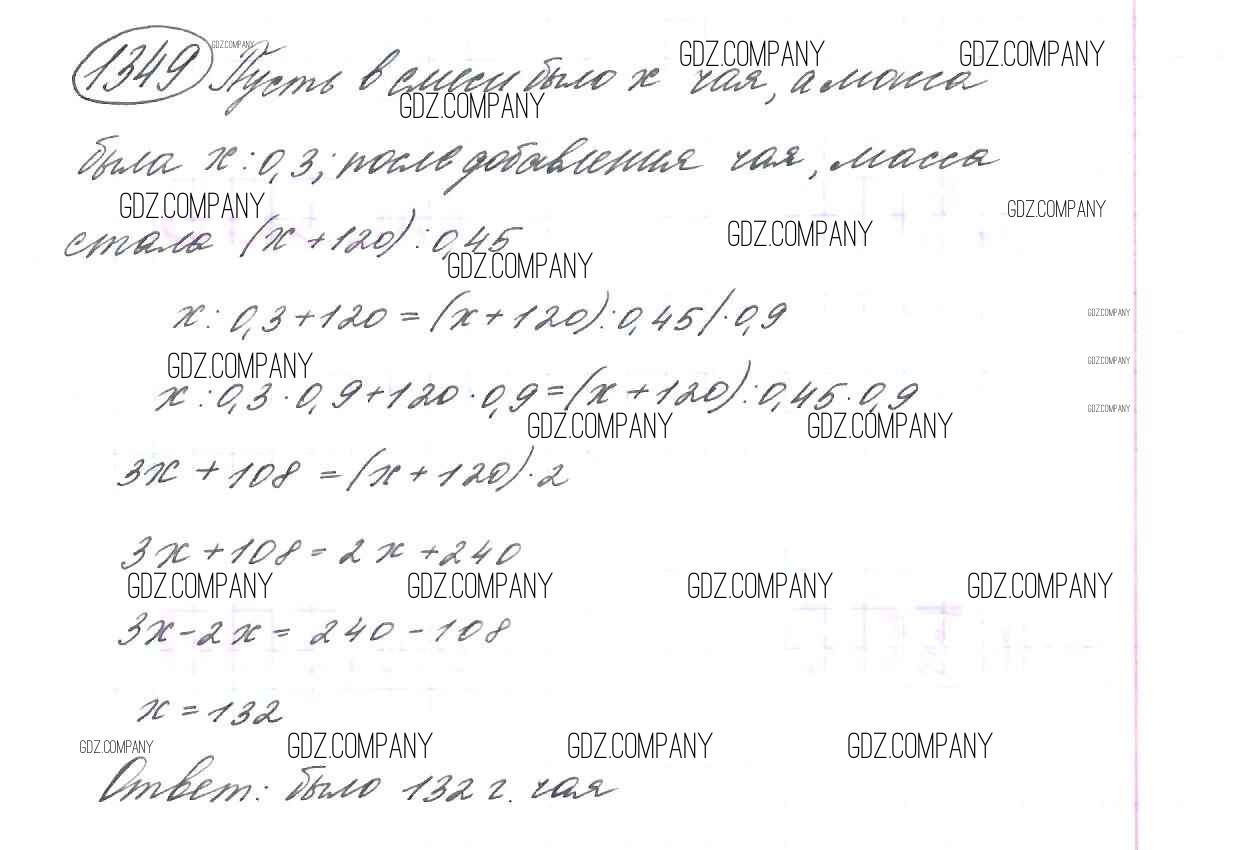 1349 Пусть в смеси было x чая, а масса
была x : 0,3; после добавления чая, масса
стала (x + 120) : 0,45
x : 0,3 + 120 = (x + 120) : 0,45 / · 0,9
x : 0,3 · 0,9 + 120 · 0,9 = (x + 120) : 0,45 · 0,9
3x + 108 = (x + 120) · 2
3x + 108 = 2x + 240
3x - 2x = 240 - 108
x = 132
Ответ: было 132 г. чая
GDZ.COMPANY
GDZ.COMPANY GDZ.COMPANY
GDZ.COMPANY
GDZ.COMPANY GDZ.COMPANY
GDZ.COMPANY
GDZ.COMPANY
GDZ.COMPANY
GDZ.COMPANY GDZ.COMPANY
GDZ.COMPANY
GDZ.COMPANY GDZ.COMPANY
GDZ.COMPANY GDZ.COMPANY GDZ.COMPANY GDZ.COMPANY
GDZ.COMPANY GDZ.COMPANY GDZ.COMPANY GDZ.COMPANY